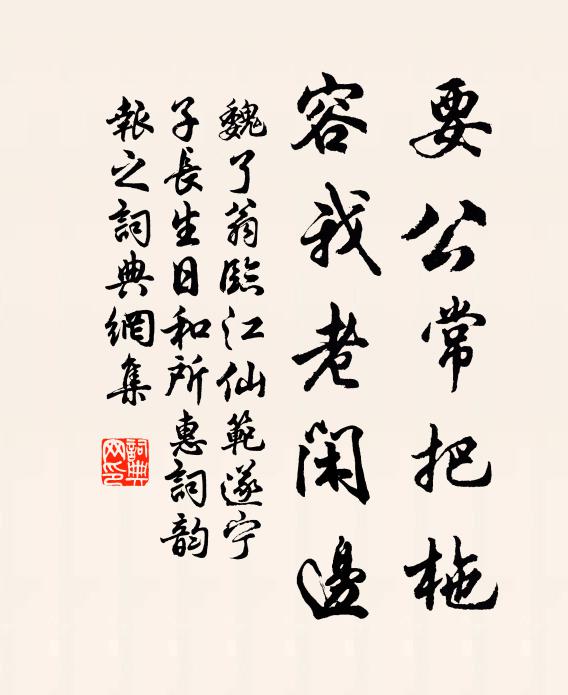 要公常把柂
容我老闲邊
魏了翁臨江仙範遂宁
子長生日和所惠詞韵
報之詞典網集
詞典
网印